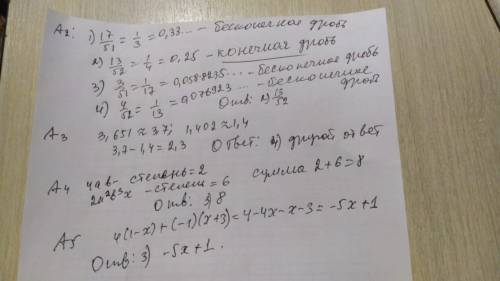 А2: 1) 17/51 = 1/3 = 0,33... - бесконечная дробь
2) 13/52 = 1/4 = 0,25 - конечная дробь
3) 3/51 = 1/17 = 0,0588235... - бесконечная дробь
4) 4/52 = 1/13 = 0,076923... - бесконечная дробь
Отв: 2) 13/52
А3 3,651 ≈ 3,7; 1,402 ≈ 1,4
3,7 - 1,4 = 2,3 Ответ: 4) другой ответ
А4 4ав - степень = 2
2а²в³х - степень = 6 сумма 2+6=8
Отв: 3) 8
А5 4(1-х) + (-1)(х+3) = 4-4х-х-3 = -5х+1
Отв: 3) -5х+1.